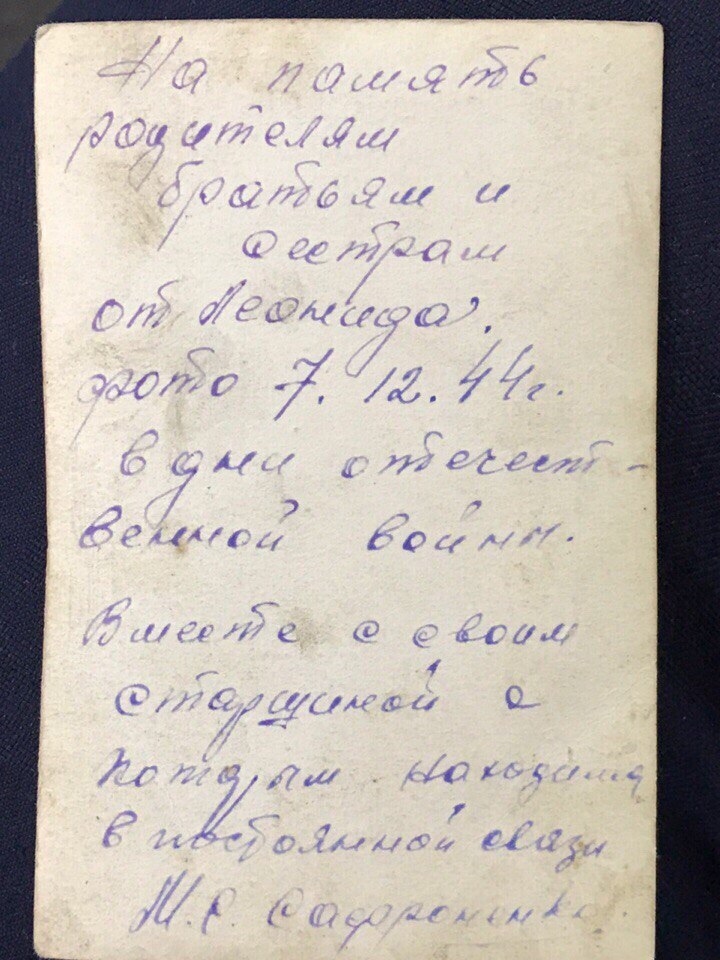 На память
родителям
братьям и
сестрам
от Леонида.
фото 7. 12. 44г.
в дни отечест-
венной войны.
Вместе с своим
старшиной с
которым находимся
в постоянной связи
М. С. Сафроненко